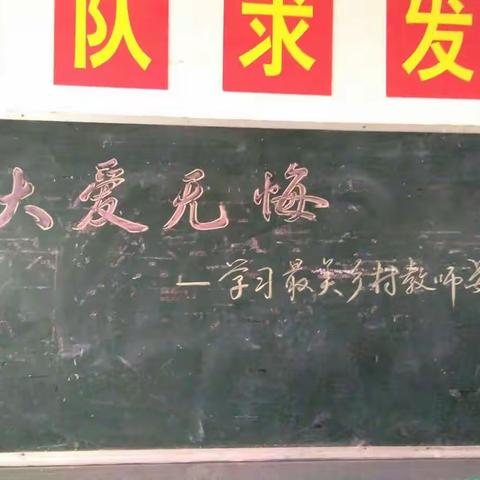 队求发
大爱无悔
—学习最美乡村教师